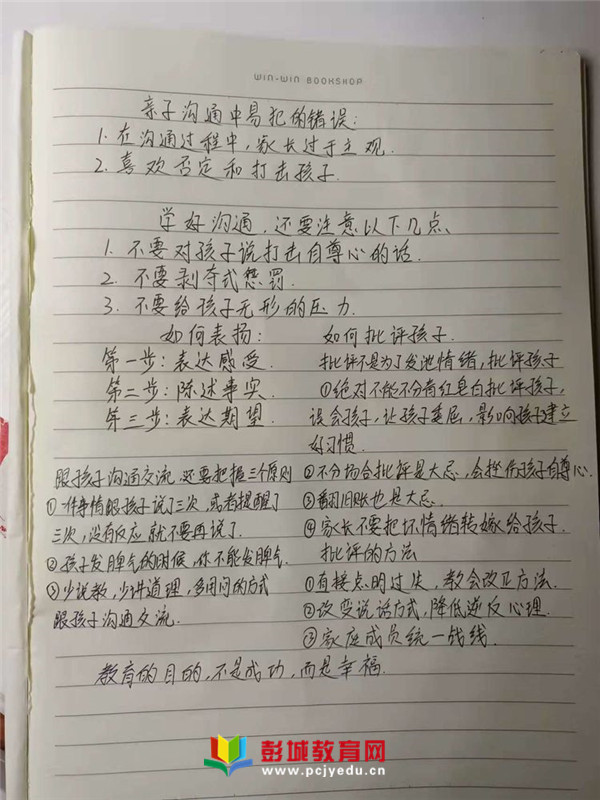 WIN-WIN BOOKSHOP
亲子沟通中易犯的错误:
1. 在沟通过程中,家长过于主观.
2. 喜欢否定和打击孩子.
学好沟通,还要注意以下几点、
1. 不要对孩子说打击自尊心的话.
2. 不要剥夺式惩罚.
3. 不要给孩子无形的压力.
如何表扬:
第一步:表达感受.
第二步:陈述事实.
第三步:表达期望.
跟孩子沟通交流.还要把握三个原则
①一件事情跟孩子说了三次,或者提醒了
三次,没有反应就不要再说了.
②孩子发脾气的时候,你不能发脾气.
③少说教,少讲道理,多用问的方式
跟孩子沟通交流.
如何批评孩子.
批评不是为了发泄情绪,批评孩子
①绝对不能不分青红皂白批评孩子,
误会孩子,让孩子委屈,影响孩子建立
好习惯.
②不分场合批评是大忌,会挫伤孩子自尊心.
③翻旧账也是大忌.
④家长不要把坏情绪转嫁给孩子.
批评的方法
①直接点明过失,教会改正方法.
②改变说话方式,降低逆反心理.
③家庭成员统一战线.
教育的目的,不是成功,而是幸福.
彭城教育网
www.pcjyedu.cn